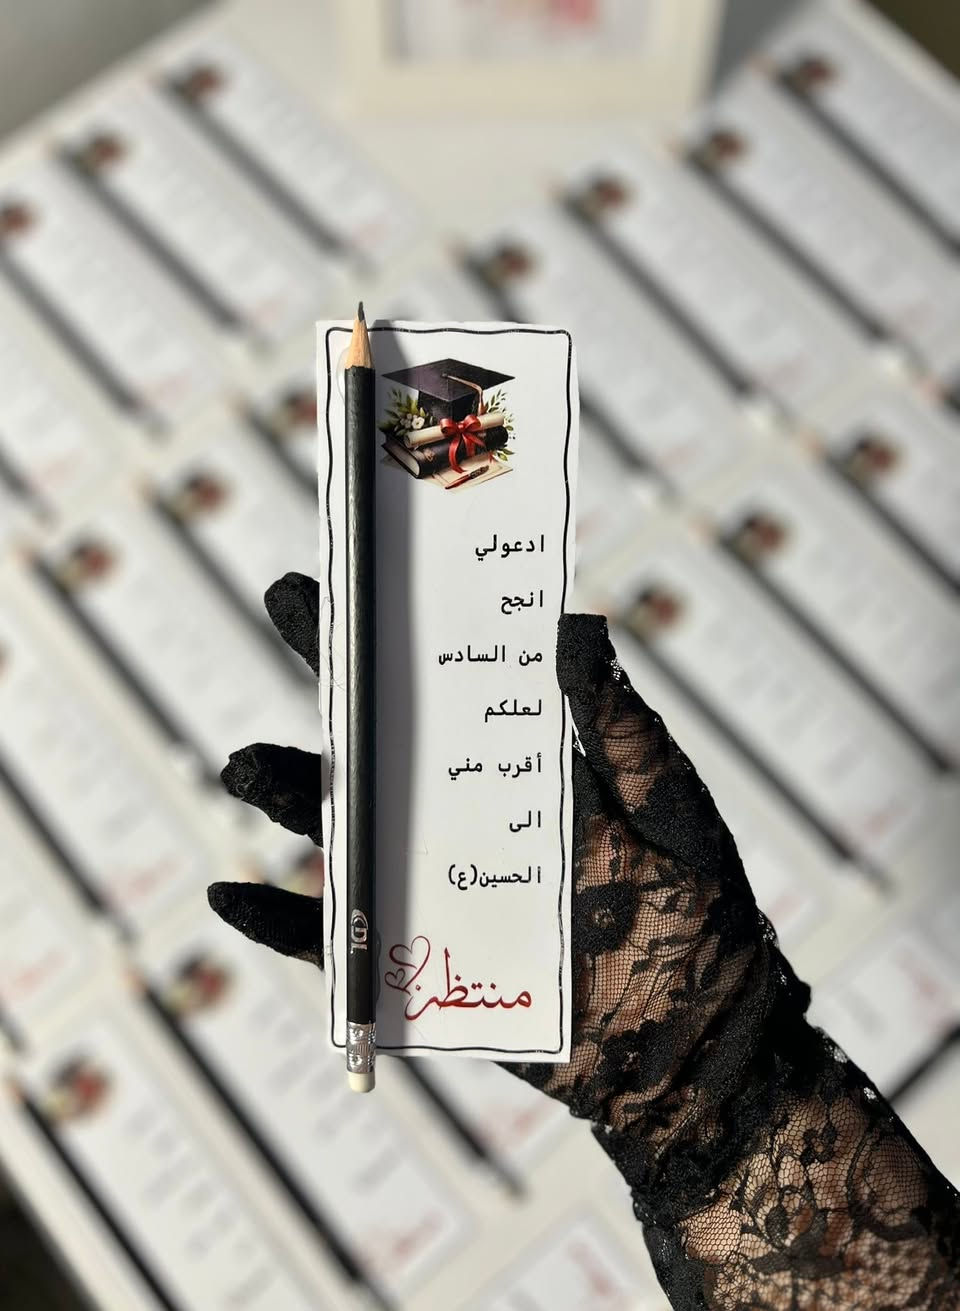 ادعولي
انجح
من السادس
لعلكم
أقرب مني
الى
الحسين(ع)
منتظر